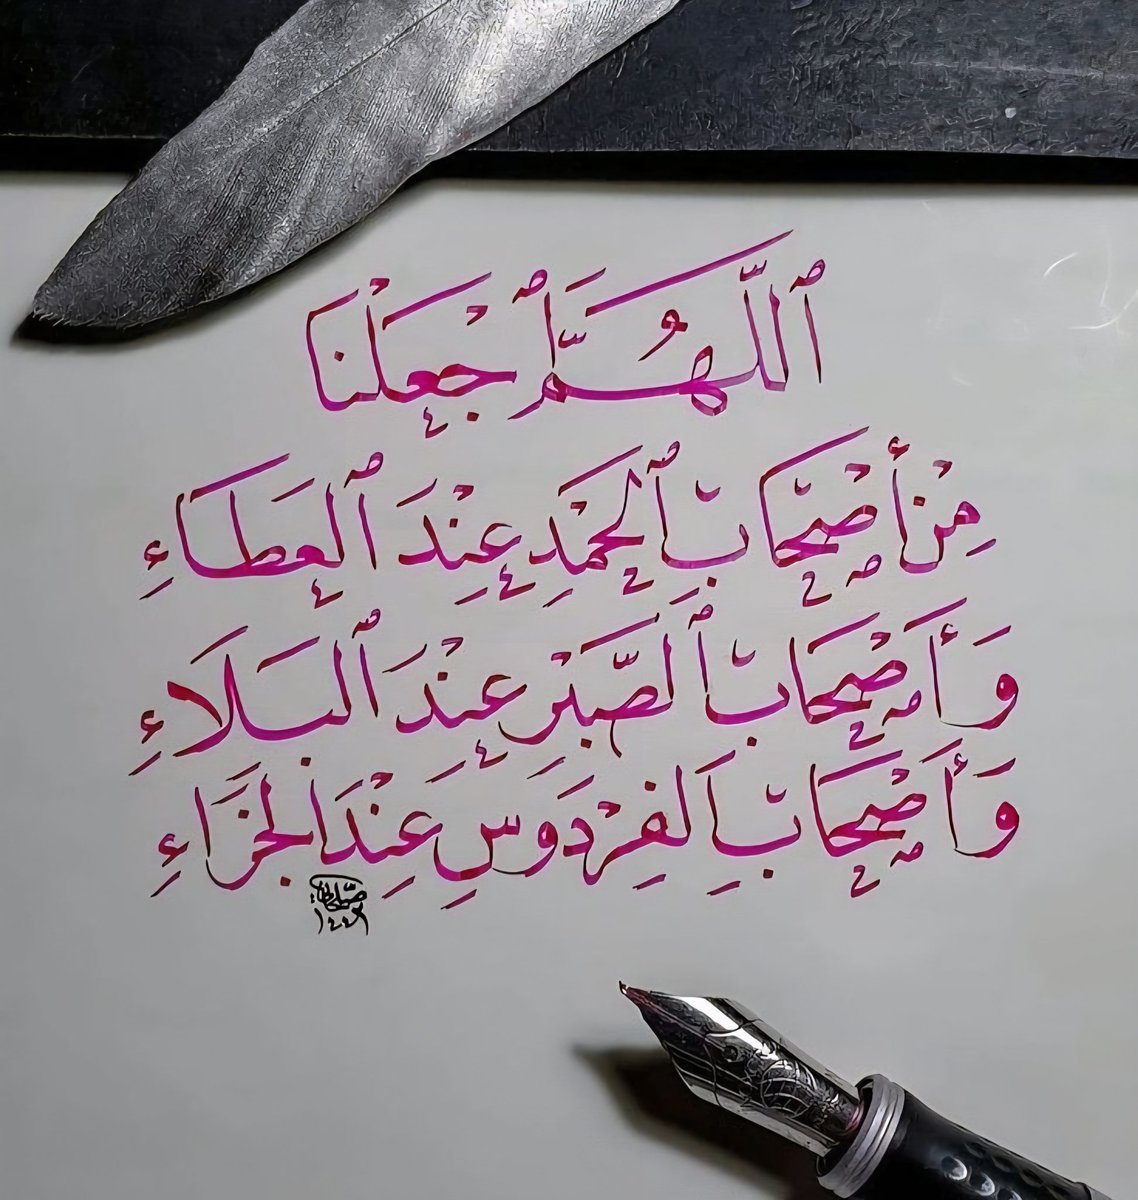 ٱللَّهُمَّ ٱجْعَلْنَا
مِنْ أَصْحَابِ ٱلْحَمْدِ عِنْدَ ٱلْعَطَاءِ
وَأَصْحَابِ ٱلصَّبْرِ عِنْدَ ٱلْبَلَاءِ
وَأَصْحَابِ الْفِرْدَوْسِ عِنْدَ الْجَزَاءِ